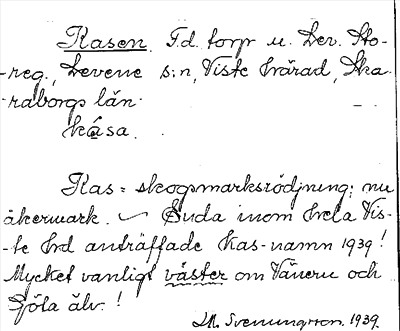 Kasen. F.d. torp u. Lev. Sto-
reg., Levene s:n, Viste härad, Ska-
raborgs län.
kása.
Kas = skogsmarksrödjning; nu
åkermark. Enda inom hela Vis-
te hd anträffade Kas-namn 1939!
Mycket vanligt väster om Vänern och
Göta älv.!
Svenungsson. 1939.